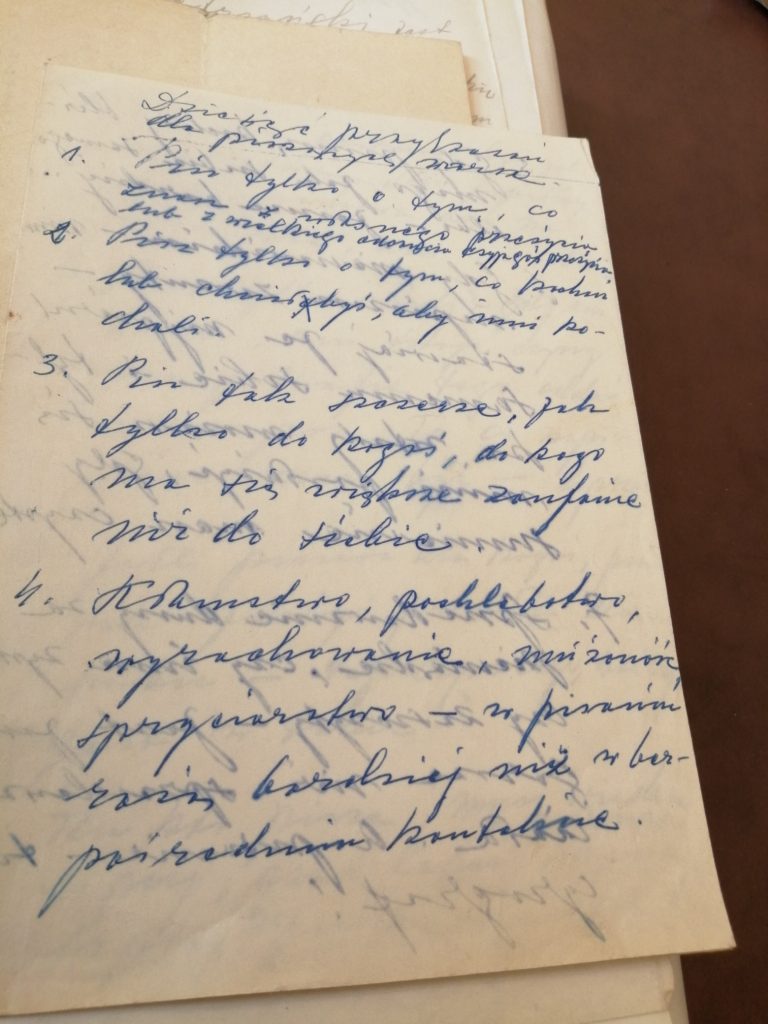 Dziesięć przykazań
dla piszących wiersze.
1. Pisz tylko o tym, co
znasz z własnego przeżycia
lub z wielkiego odczucia czyjegoś przeżycia
2. Pisz tylko o tym, co kochasz
lub chciałbyś, aby inni ko-
chali.
3. Pisz tak szczerze, jak
tylko do kogoś, do kogo
ma się większe zaufanie
niż do siebie
4. Kłamstwo, pochlebstwo,
wyrachowanie,
spryciarstwo – w pisaniu
rażą bardziej niż w bez-
pośrednim kontakcie.